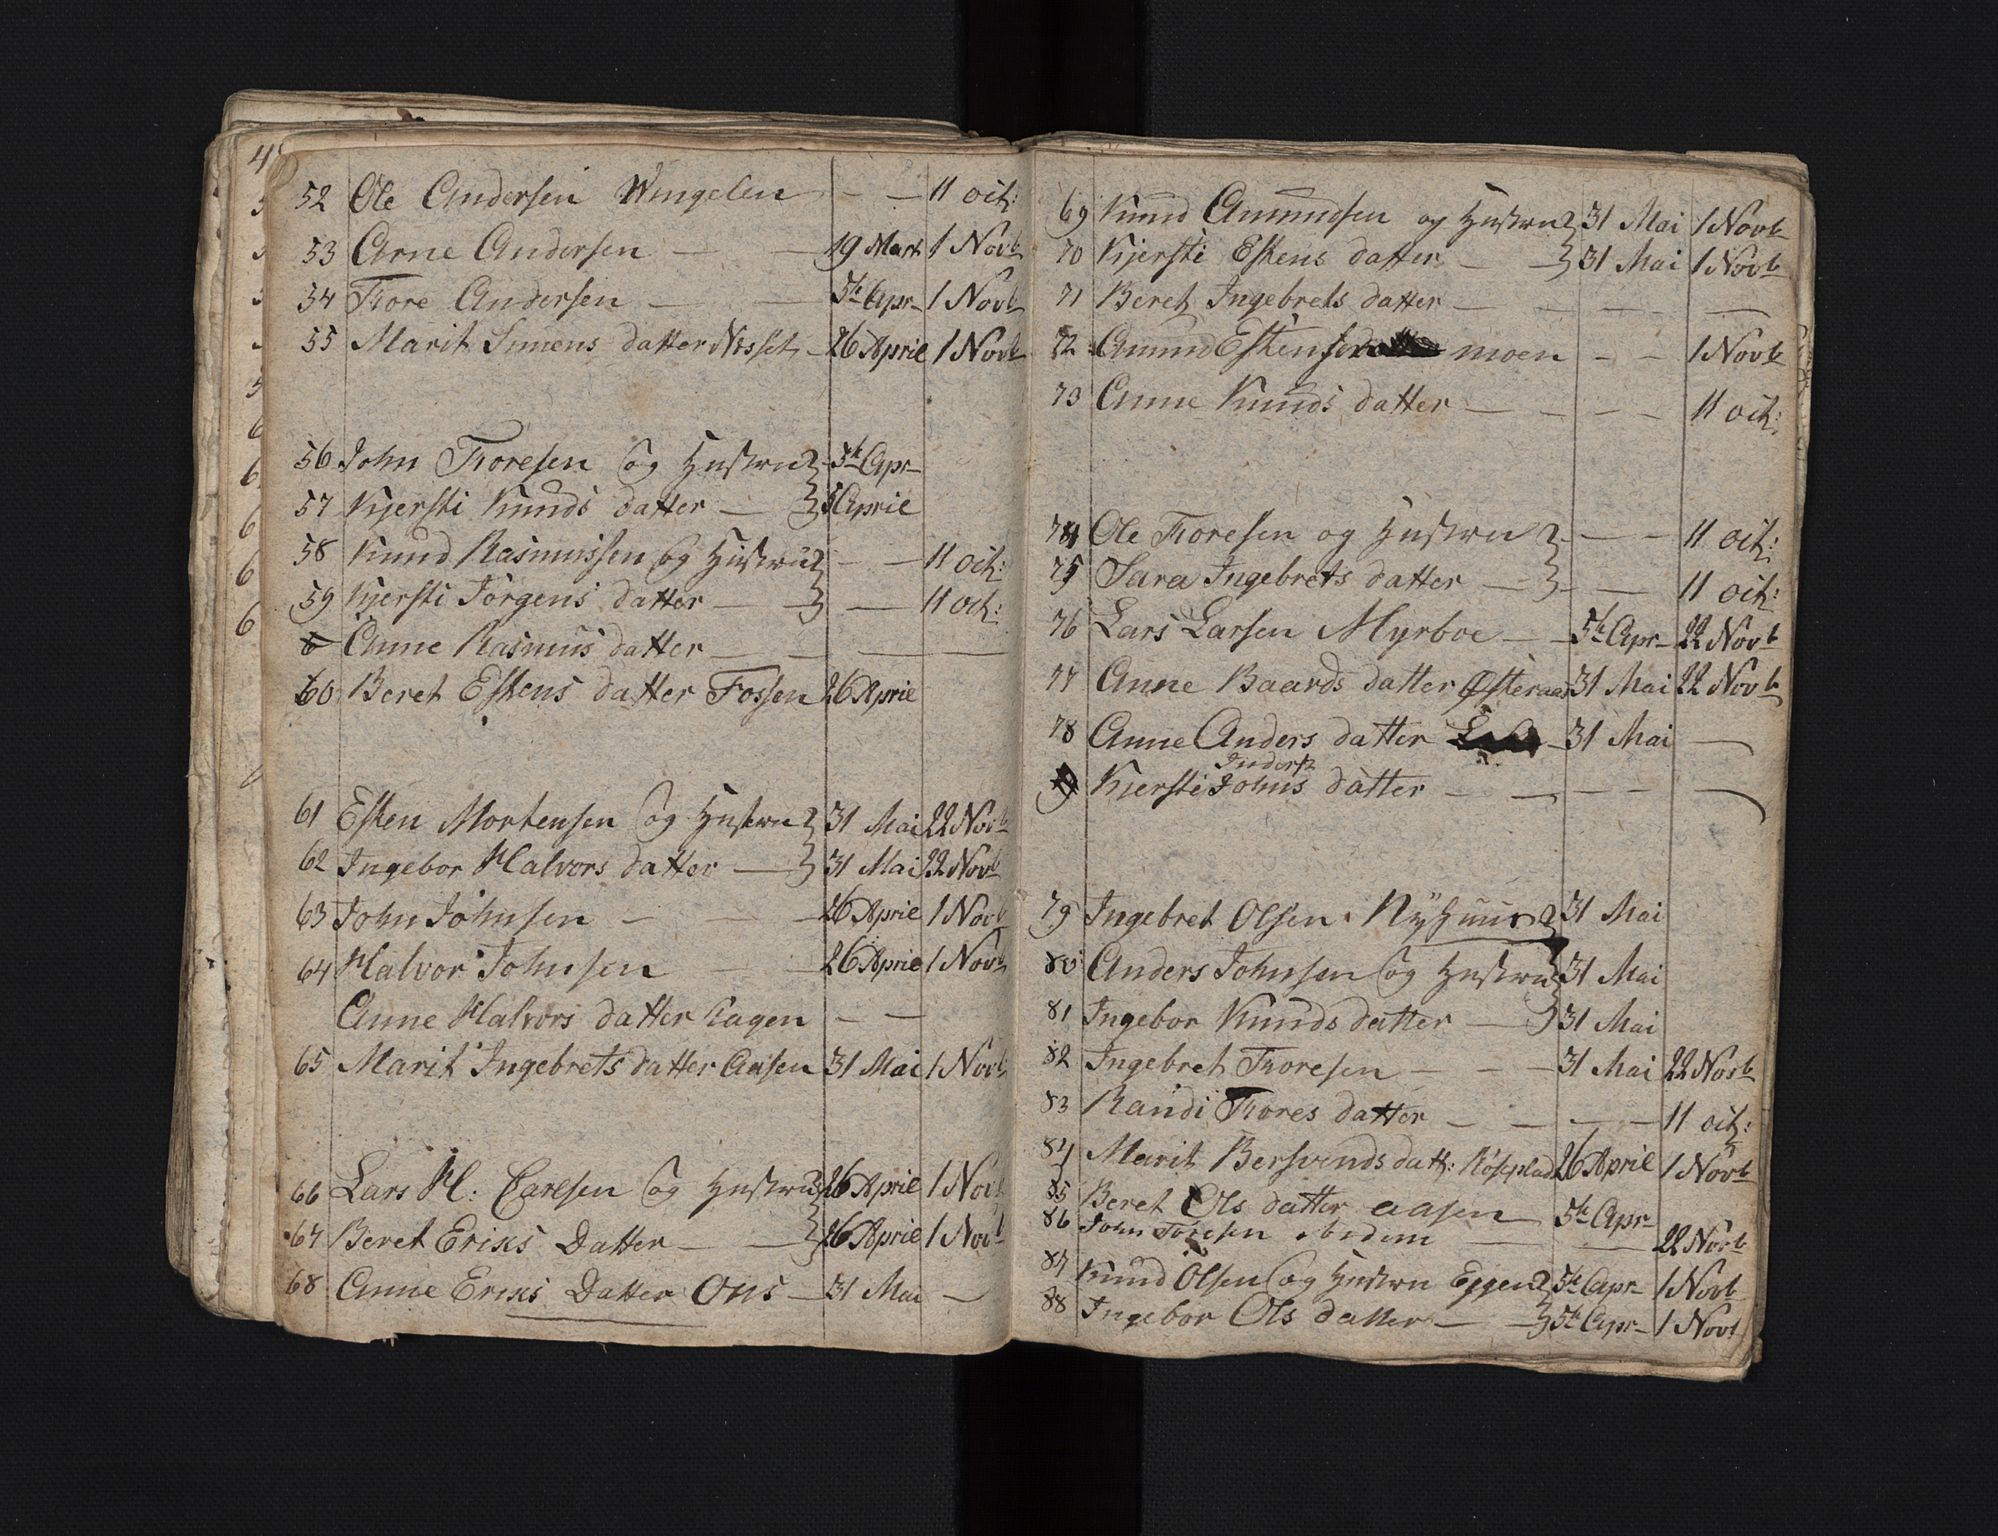 52 Ole Andersen Wingelen — — 11 oct:
53 Arne Andersen — — 19 Mart 1 Novb
54 Tore Andersen — — 5te Apr— 1 Novb
55 Marit Simens datter — 26 April 1 Novb
56 John Toresen og Hustrue 5te Apr—
57 Kjersti Knuds datter — 5 April
58 Knud Rasmussen og Hustrue — — 11 oct:
59 Kjersti Jörgens datter — — — 11 oct:
Anne Rasmus datter — — — —
60 Beret Eskens datter Fossen 26 April
61 Esken Mortensen og Hustrue 31 Mai 22 Novb
62 Ingebor Halvors datter — 31 Mai 22 Novb
63 John Johnsen — — — 26 April 1 Novb
64 Halvor Johnsen — — 26 April 1 Novb
Anne Halvors datter — —
65 Marit Ingebrets datter Aasen 31 Mai 1 Novb
66 Lars H: Carlsen og Hustrue 26 April 1 Novb
67 Beret Eriks Datter — — 26 April 1 Novb
68 Anne Eriks Datter Ous — 31 Mai —
69 Knud Amundsen og Hustrue 31 Mai 1 Novb
70 Kjersti Eskens datter — — 31 Mai 1 Novb
71 Beret Ingebrets datter — — — — —
72 Amund Eskensen moen — — 1 Novb
73 Anne Knuds datter — — — — 11 oct:
74 Ole Toresen og Hustrue — — 11 oct:
75 Sara Ingebrets datter — — — 11 oct:
76 Lars Larsen Myrboe — — 5te Apr— 22 Novb
77 Anne Baards datter Østeraas 31 Mai 22 Novb
78 Anne Anders datter — 31 Mai —
Kjersti Johns datter — — — — —
79 Ingebret Olsen Nÿhuus 31 Mai
80 Anders Johnsen og Hustrue 31 Mai
81 Ingebor Knuds datter — 31 Mai
82 Ingebret Toresen — — — 31 Mai 22 Novb
83 Randi Tores datter — — — — 11 oct:
84 Marit Bersvends datt: 26 April 1 Novb
85 Beret Ols datter aasen — 5te Apr—
86 John Toresen — — 22 Novb
87 Knud Olsen og Hustrue Eggen 5te Apr— 1 Novb
88 Ingebor Ols datter — — 5te Apr— 1 Novb